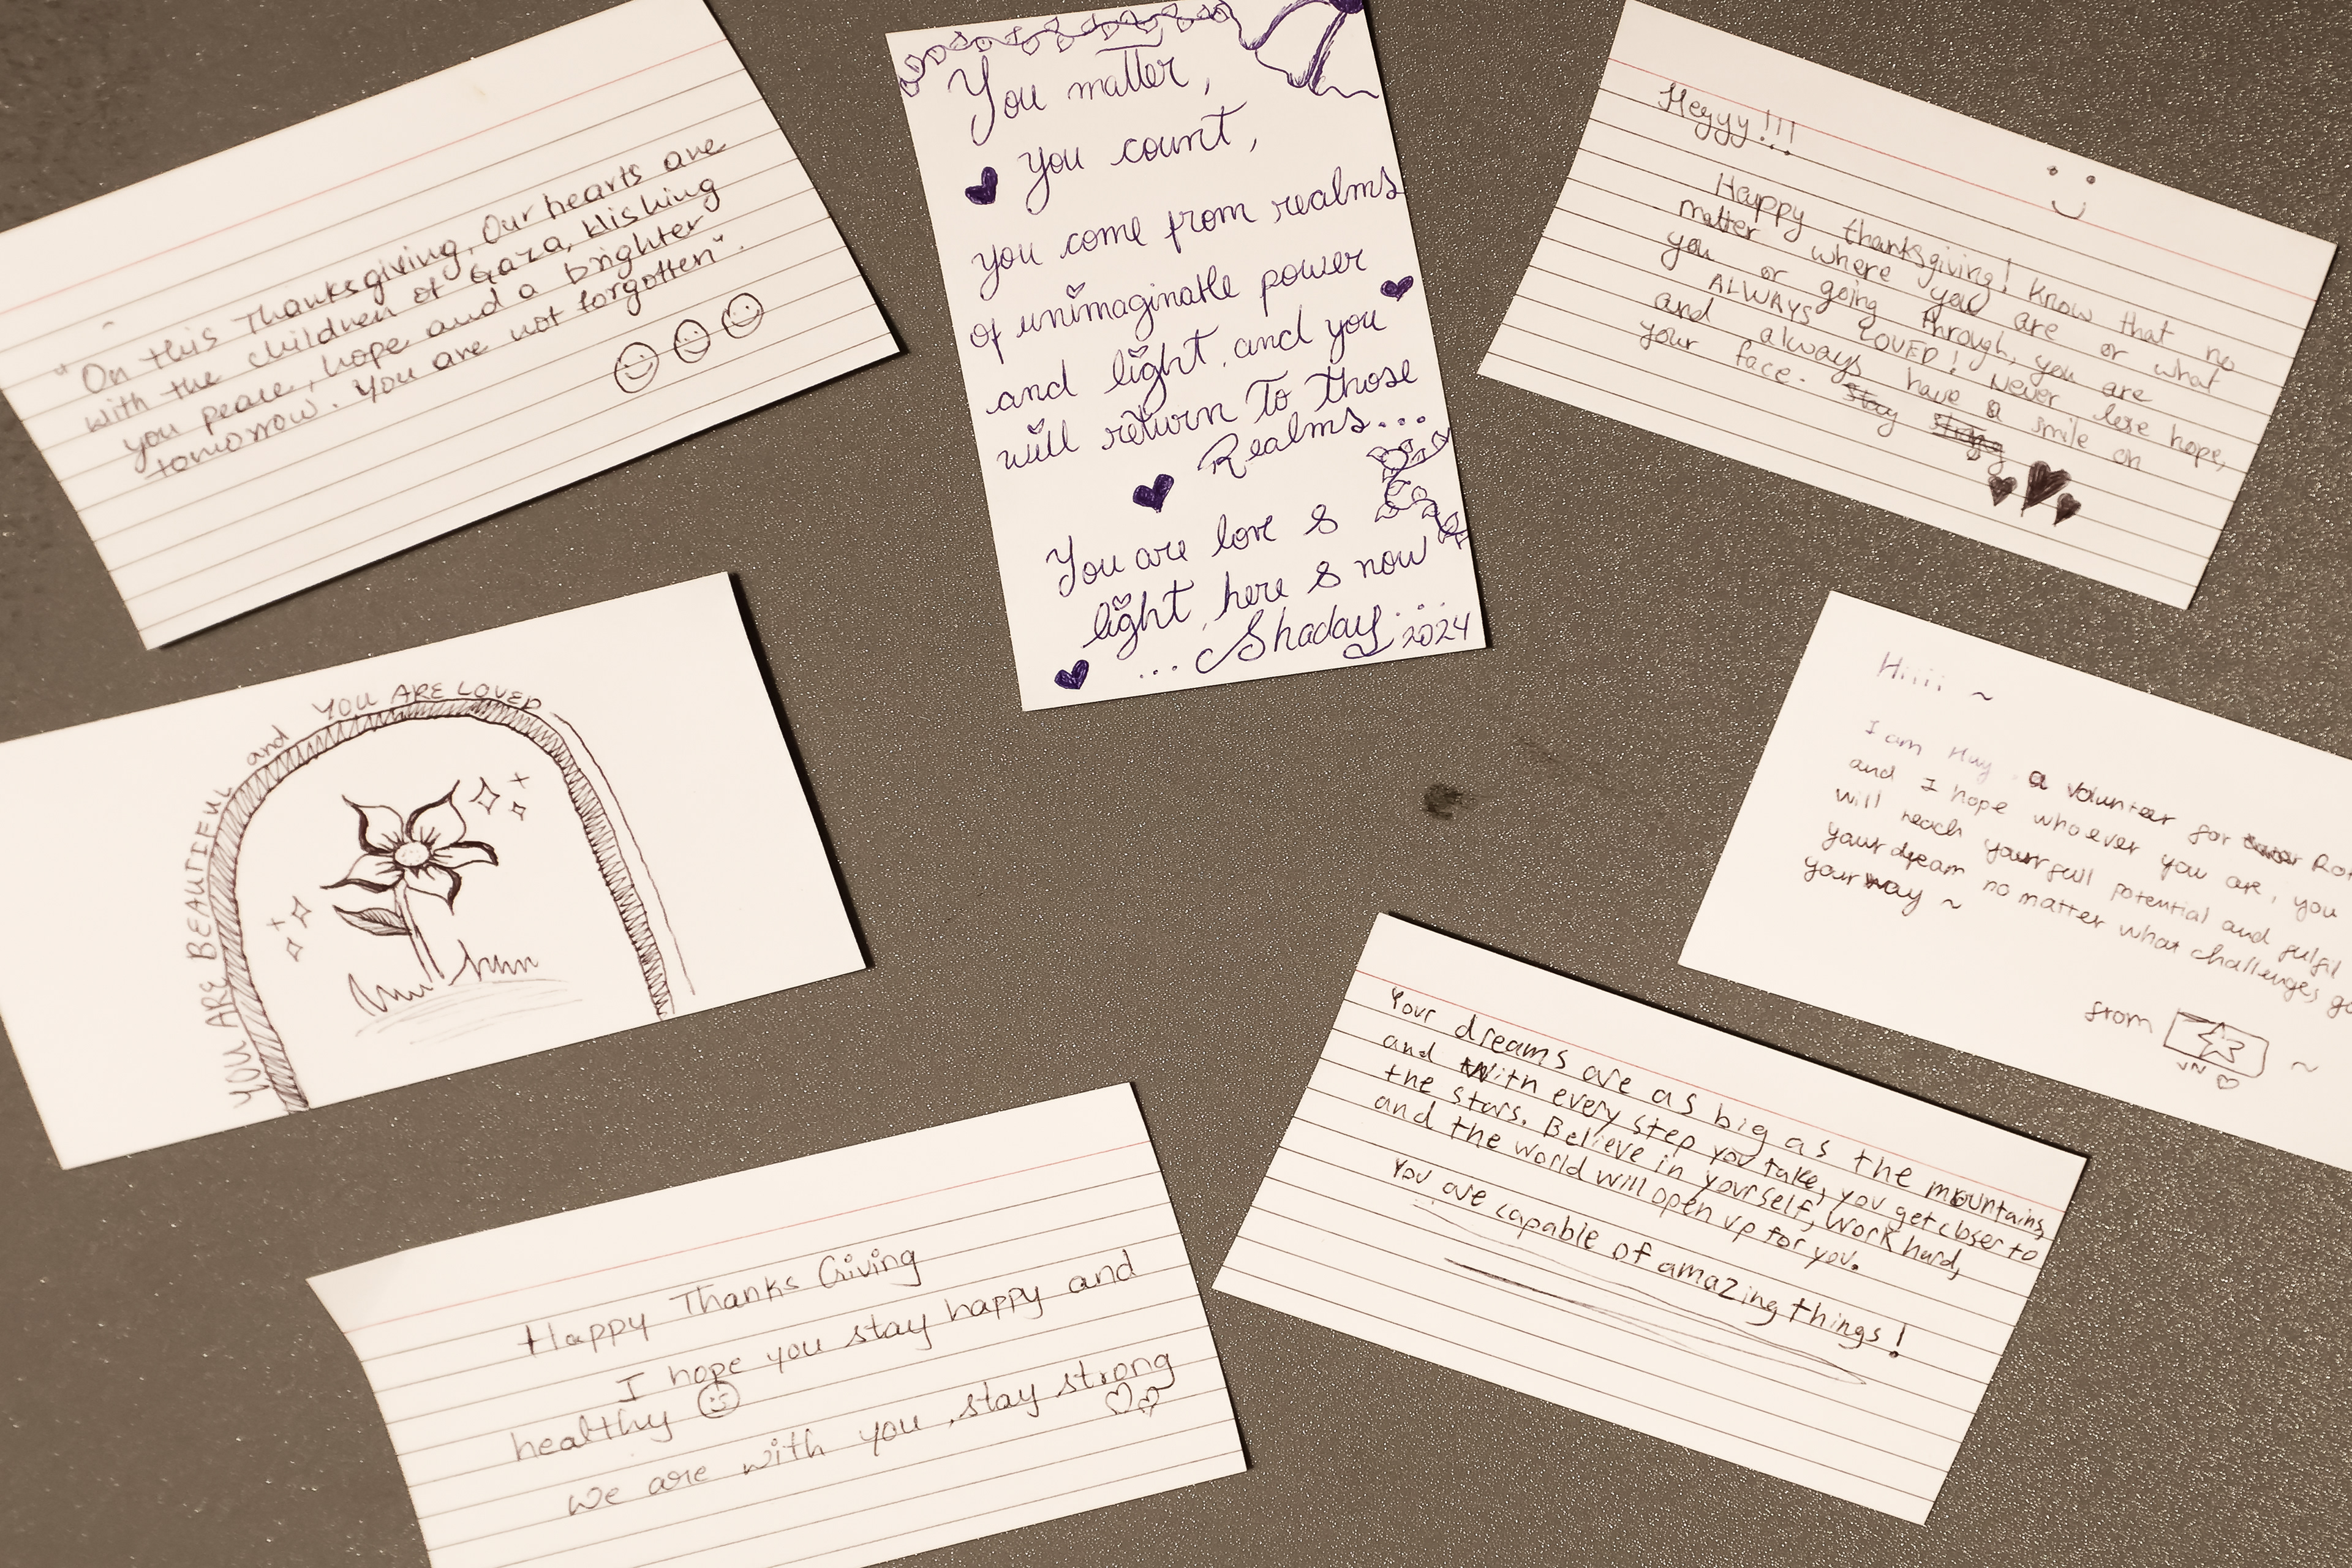 "On this Thanksgiving, Our hearts are
with the children of Gaza, Wishing
you peace, hope and a brighter
tomorrow. You are not forgotten".
You matter,
you count,
you come from realms
of unimaginable power
and light, and you
will return To those
Realms...
You are love &
light, here & now
... Shaday...
2024
Heyyy!!!
Happy thanksgiving! Know that no
matter where you are or what
you or going through, you are
ALWAYS LOVED! Never lose hope,
and always have a smile on
your face. Stay strong
YOU ARE BEAUTIFUL and YOU ARE LOVED
Hiiii ~
I am Huy, a volunteer for Rot
and I hope whoever you are, you
will reach your full potential and fulfil
your dream no matter what challenges go
your way ~
from ~
VN
Your dreams are as big as the mountains,
and With every step you take, you get closer to
the stars. Believe in yourself, Work hard,
and the world will open up for you.
You are capable of amazing things!
Happy Thanks Giving
I hope you stay happy and
healthy
We are with you, stay strong